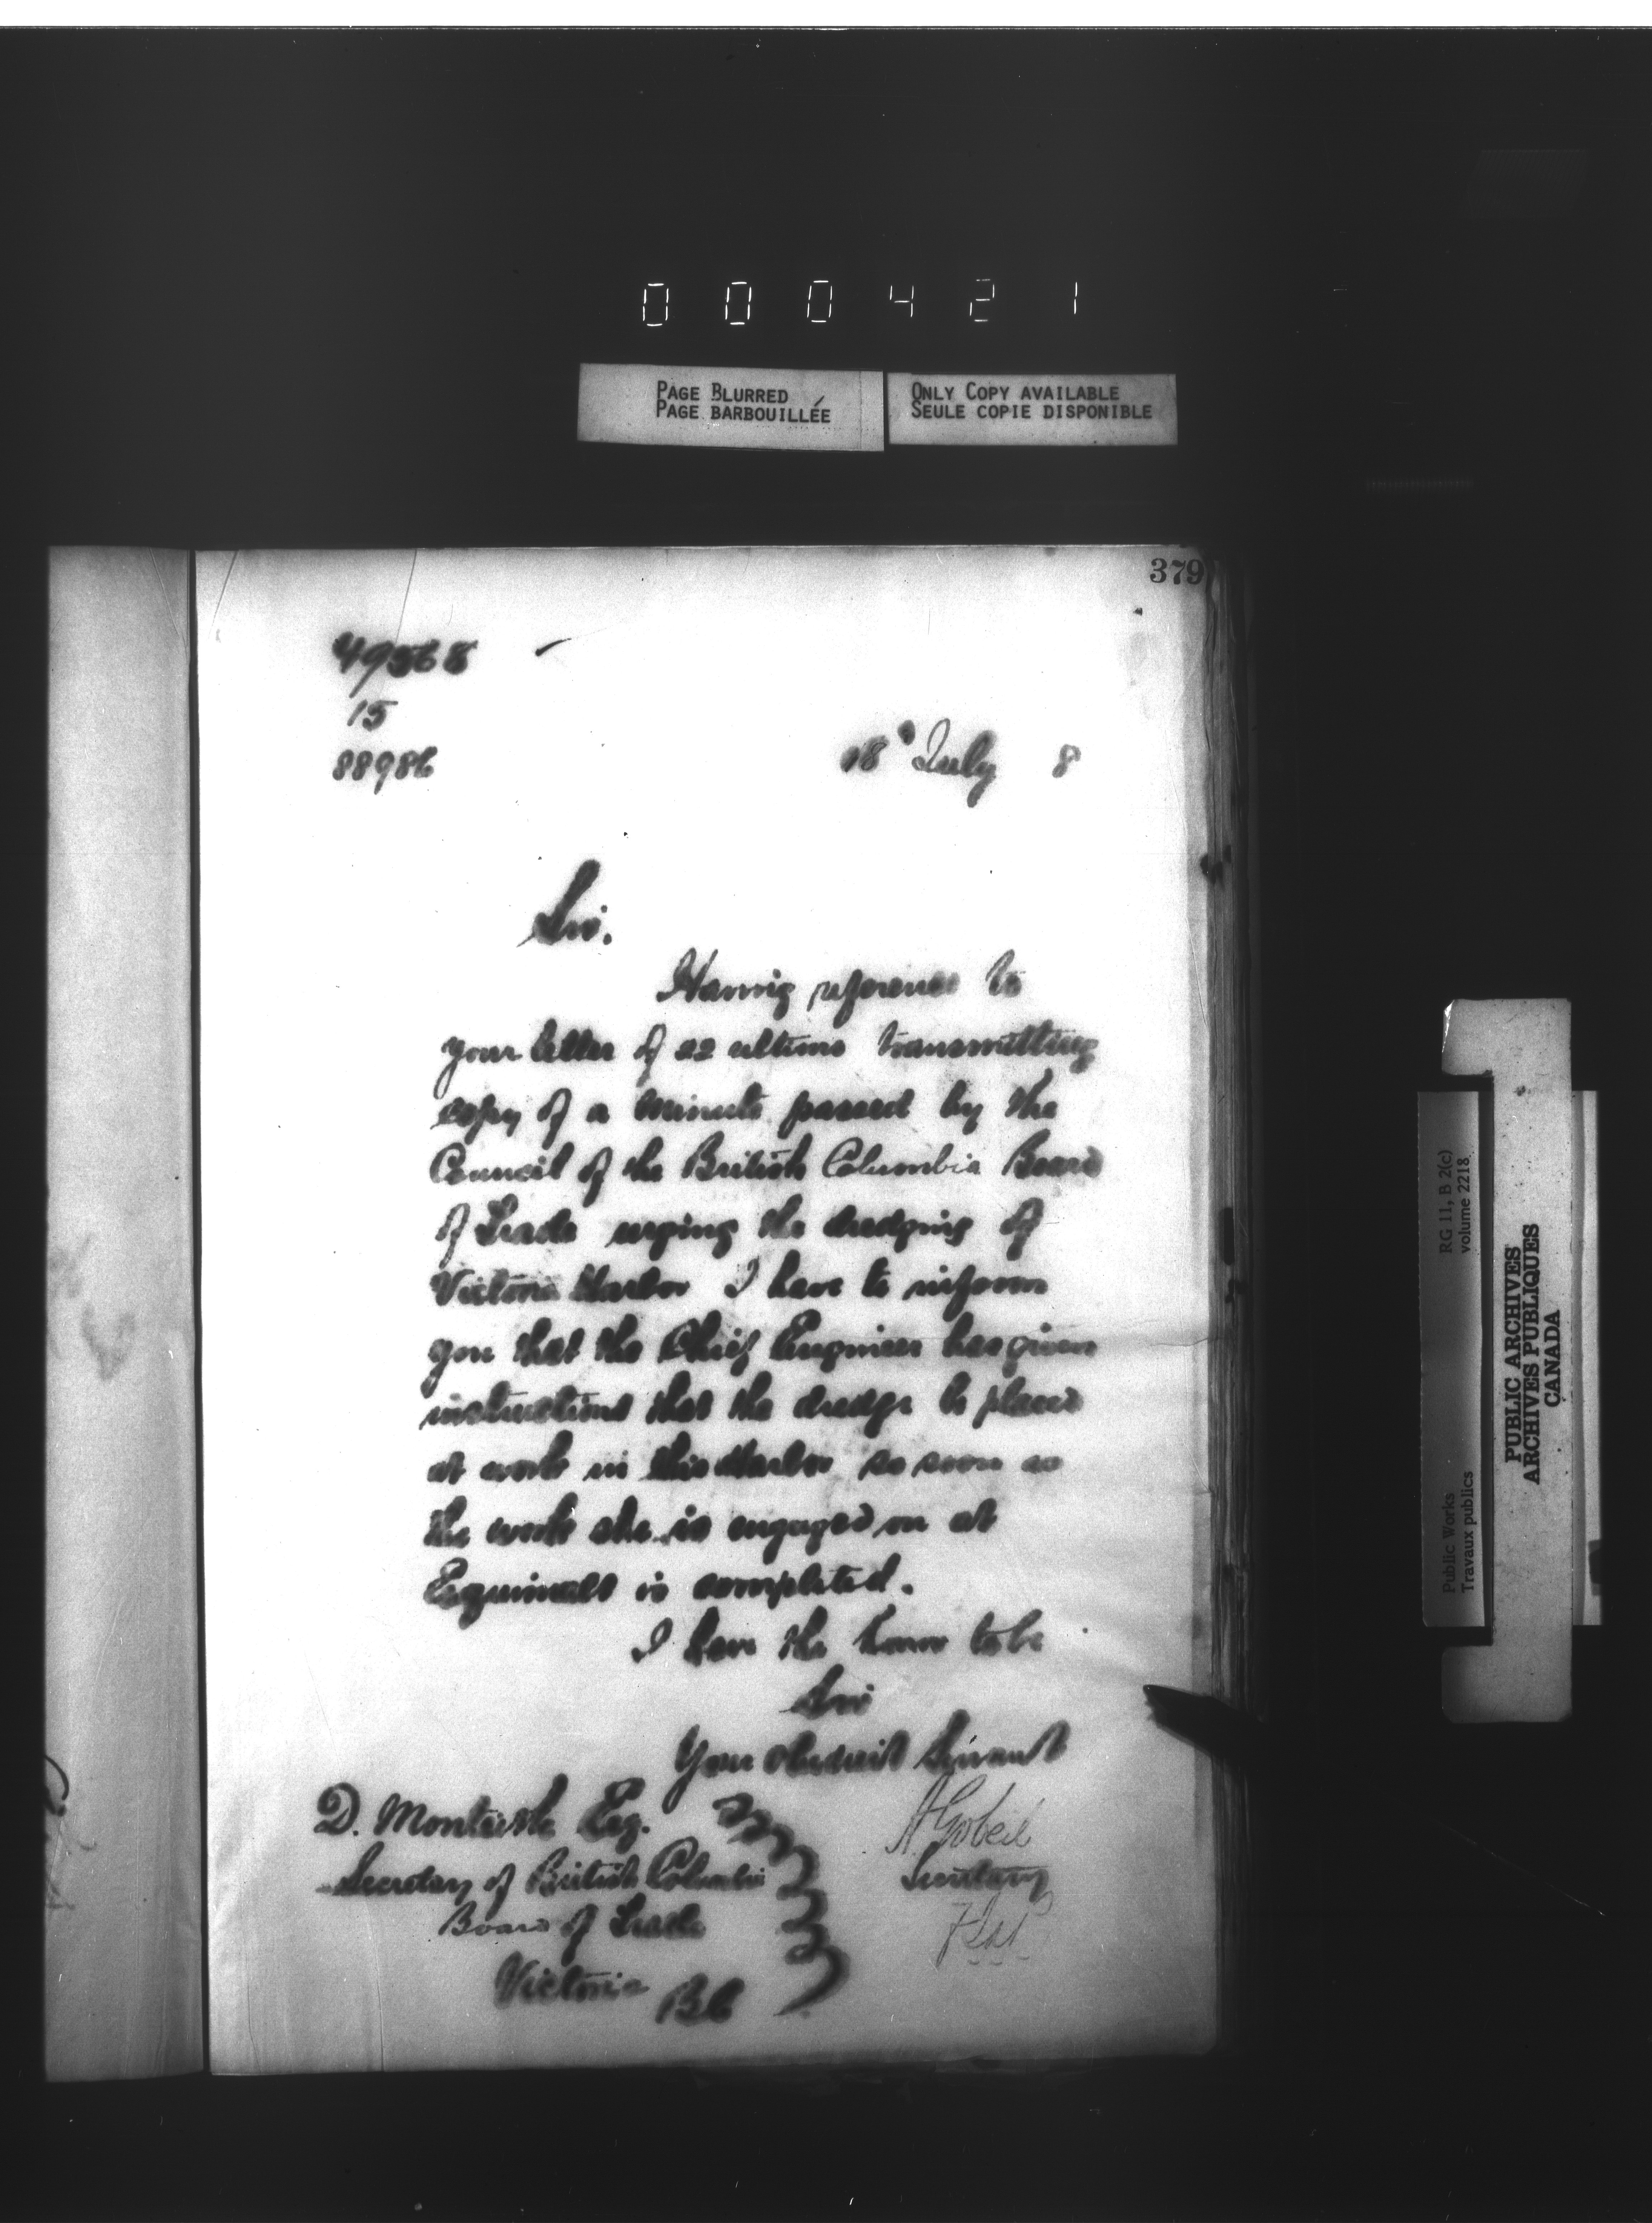 000421
PAGE BLURRED
PAGE BARBOUILLÉE
ONLY COPY AVAILABLE
SEULE COPIE DISPONIBLE
379
15
88986
18 July 8
Sir.
Having reference to
your letter of 22 ultimo transmitting
copy of a minute passed by the
Council of the British Columbia Board
of Trade urging the dredging of
Victoria Harbor I have to inform
you that the Chief Engineer has given
instructions that the dredge be placed
at work in this Harbor so soon as
the work she is engaged on at
Esquimalt is completed.
I have the honor to be
Sir
Your obedient Servant
A Gobeil
Secretary
D. Monteith Esq.
Secretary of British Columbia
Board of Trade
Victoria BC
RG 11, B 2(c)
volume 2218
Public Works
Travaux publics
PUBLIC ARCHIVES
ARCHIVES PUBLIQUES
CANADA